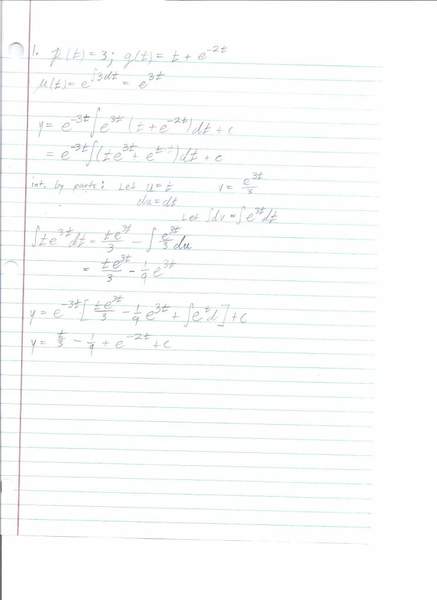 1. p(t) = 3; g(t) = t + e^{-2t}
μ(t) = e^{∫3dt} = e^{3t}
y = e^{-3t} ∫ e^{3t} (t + e^{-2t}) dt + c
= e^{-3t} ∫ (te^{3t} + e^{t}) dt + c
int. by parts: Let u = t v = e^{3t}/3
du = dt
Let ∫dv = ∫e^{3t}dt
∫te^{3t}dt = te^{3t}/3 - ∫ e^{3t}/3 du
= te^{3t}/3 - 1/9 e^{3t}
y = e^{-3t} [ te^{3t}/3 - 1/9 e^{3t} + ∫e^{t}d ] + c
y = t/3 - 1/9 + e^{-2t} + c